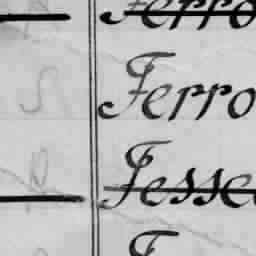 Ferro
Ferro
Fesse